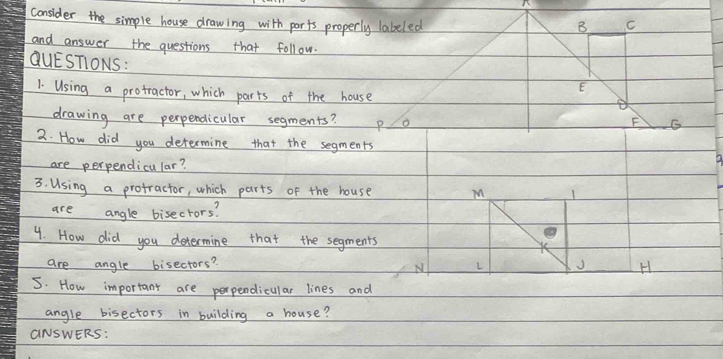 Consider the simple house drawing with parts properly labeled
and answer the questions that follow.
QUESTIONS:
1. Using a protractor, which parts of the house
drawing are perpendicular segments?
2. How did you determine that the segments
are perpendicular?
3. Using a protractor, which parts of the house
are angle bisectors?
4. How did you determine that the segments
are angle bisectors?
5. How important are perpendicular lines and
angle bisectors in building a house?
ANSWERS:
A
B C
E
D
P O F G
M I
K
N L J H